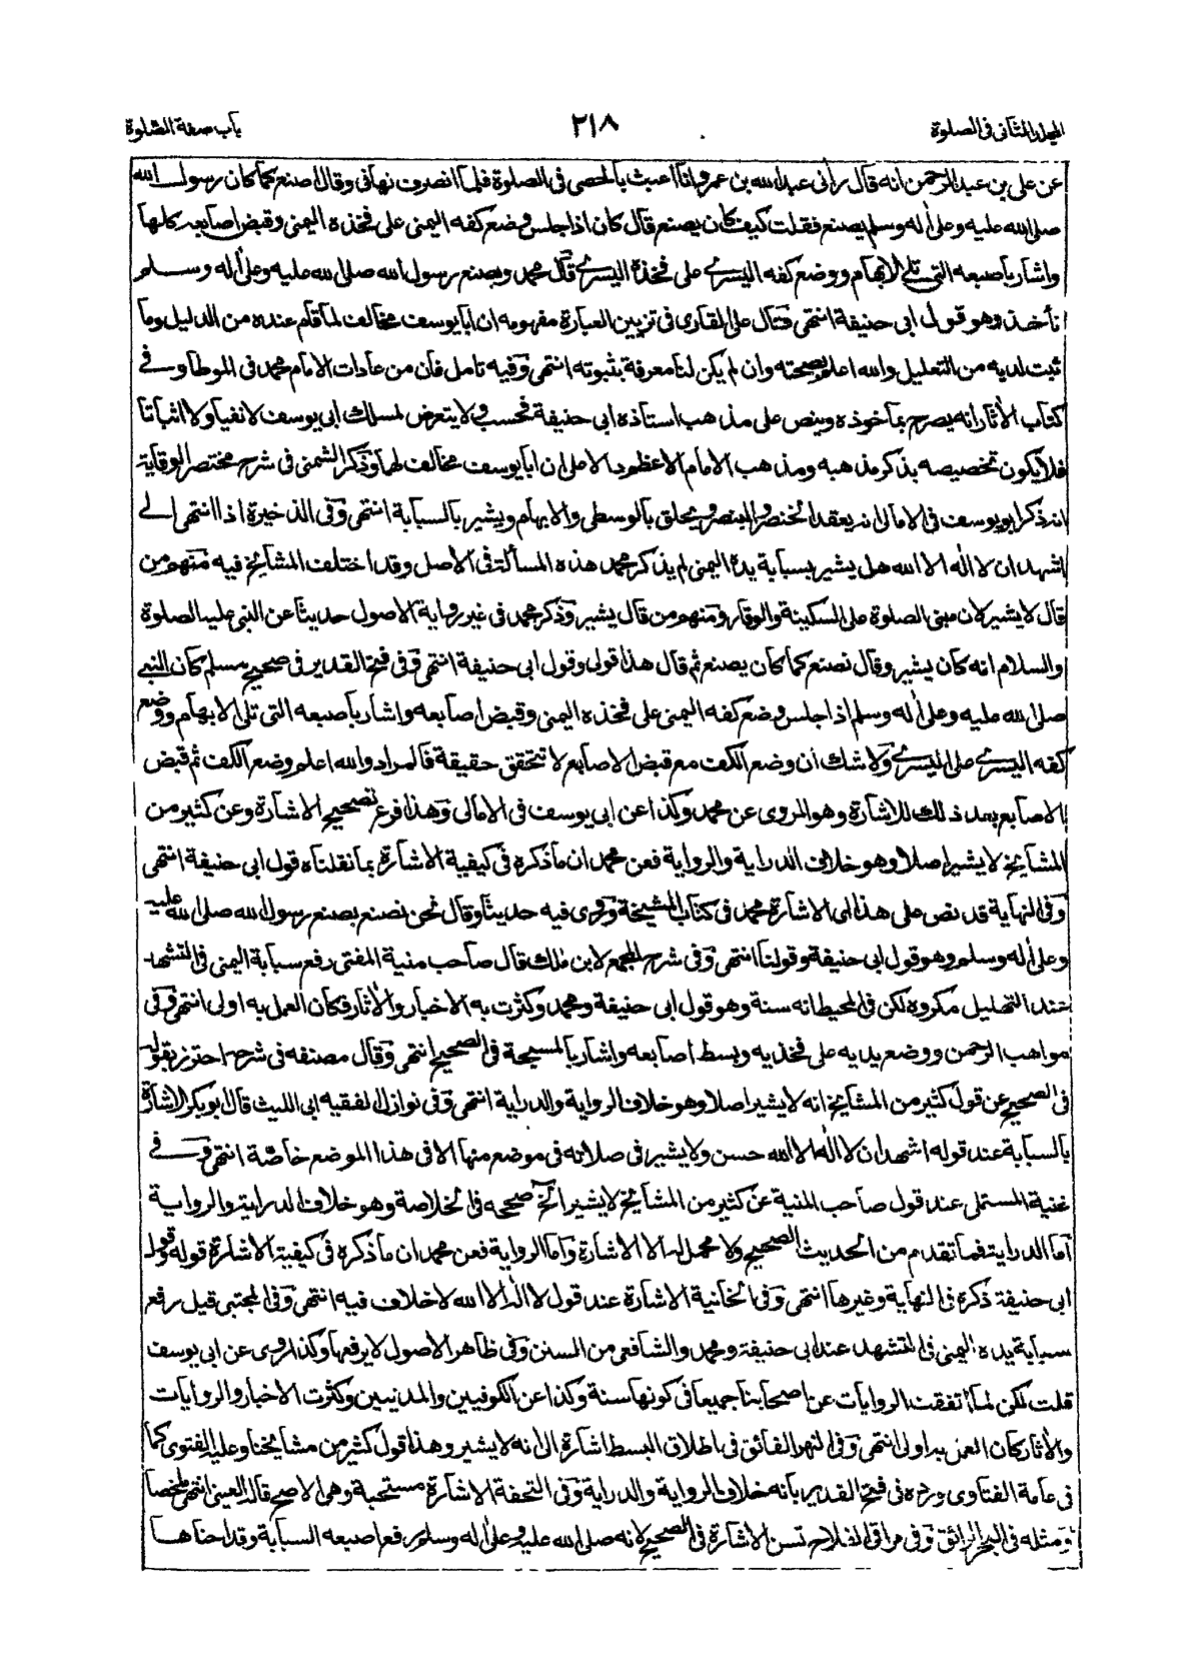 المجلد الثانى فى الصلوة
٢١٨
باب صفة الصلوة
عن على بن عبد الرحمن انه قال رأنى عبد الله بن عمر وانا اعبث بالحصى فى الصلوة فلما انصرف نهانى وقال اصنع كما كان رسول الله
صلى الله عليه وعلى اٰله وسلم يصنع فقلت كيف كان يصنع قال كان اذا جلس وضع كفه اليمنى على فخذه اليمنى وقبض اصابعه كلها
واشار باصبعه التى تلى الابهام ووضع كفه اليسرى على فخذه اليسرى قال محمد وبصنع رسول الله صلى الله عليه وعلى اٰله وسلم
نأخذ وهو قول ابى حنيفة انتهى وقال على القارى فى تزيين العبارة مفهومه ان ابا يوسف مخالف لما قام عنده من الدليل وما
ثبت لديه من التعليل والله اعلم بصحته وان لم يكن لنا معرفة بثبوته انتهى وفيه تامل فان من عادات الامام محمد فى الموطا وفى
كتاب الاٰثار انه يصرح بمأخوذه وينص على مذهب استاذه ابى حنيفة فحسب ولا يتعرض لمسلك ابى يوسف لا نفيا ولا اثباتا
فلا يكون تخصيصه بذكر مذهبه ومذهب الامام الاعظم دالا على ان ابا يوسف مخالف لهما وذكر الشمنى فى شرح مختصر الوقاية
انه ذكر ابو يوسف فى الامالى انه يعقد الخنصر والبنصر ويحلق بالوسطى والابهام ويشير بالسبابة انتهى وفى الذخيرة اذا انتهى الى
اشهد ان لا اله الا الله هل يشير بسبابة يده اليمنى لم يذكر محمد هذه المسألة فى الاصل وقد اختلف المشايخ فيه منهم من
قال لا يشير لان مبنى الصلوة على السكينة والوقار ومنهم من قال يشير وذكر محمد فى غير رواية الاصول حديثا عن النبى عليه الصلوة
والسلام انه كان يشير وقال نصنع كما كان يصنع ثم قال هذا قولى وقول ابى حنيفة انتهى وفى فتح القدير فى صحيح مسلم كان النبى
صلى الله عليه وعلى اٰله وسلم اذا جلس وضع كفه اليمنى على فخذه اليمنى وقبض اصابعه واشار باصبعه التى تلى الابهام ووضع
كفه اليسرى على اليسرى ولا شك ان وضع الكف مع قبض الاصابع لا تتحقق حقيقة فالمراد والله اعلم وضع الكف ثم قبض
الاصابع بعد ذلك للاشارة وهو المروى عن محمد وكذا عن ابى يوسف فى الامالى وهذا فرع تصحيح الاشارة وعن كثير من
المشايخ لا يشير اصلا وهو خلاف الدراية والرواية فعن محمد ان ما ذكره فى كيفية الاشارة بما نقلناه قول ابى حنيفة انتهى
وفى النهاية قد نص على هذا اى الاشارة محمد فى كتاب المشيخة وروى فيه حديثا وقال نحن نصنع بصنع رسول الله صلى الله عليه
وعلى اٰله وسلم وهو قول ابى حنيفة وقولنا انتهى وفى شرح المجمع لابن ملك قال صاحب منية المفتى رفع سبابة اليمنى فى التشهد
عند التهليل مكروه لكن فى المحيط انه سنة وهو قول ابى حنيفة ومحمد وكثرت به الاخبار والاٰثار فكان العمل به اولى انتهى وفى
مواهب الرحمن ووضع يديه على فخذيه وبسط اصابعه واشار بالمسبحة فى الصحيح انتهى وقال مصنفه فى شرحه احترز بقوله
فى الصحيح عن قول كثير من المشايخ انه لا يشير اصلا وهو خلاف الرواية والدراية انتهى وفى نوازل الفقيه ابى الليث قال ابو بكر الاشارة
بالسبابة عند قوله اشهد ان لا اله الا الله حسن ولا يشير فى صلاته فى موضع منها الا فى هذا الموضع خاصة انتهى وفى
غنية المستملى عند قول صاحب المنية عن كثير من المشايخ لا يشير الخ صححه فى الخلاصة وهو خلاف الدراية والرواية
اما الدراية فما تقدم من الحديث الصحيح ولا محمل له الا الاشارة واما الرواية فعن محمد ان ما ذكره فى كيفية الاشارة قوله وقول
ابى حنيفة ذكره فى النهاية وغيرها انتهى وفى الخانية الاشارة عند قول لا اله الا الله لا خلاف فيه انتهى وفى المجتبى قيل رفع
سبابة يده اليمنى فى التشهد عند ابى حنيفة ومحمد والشافعى من السنن وفى ظاهر الاصول لا يرفعها وكذا روى عن ابى يوسف
قلت لكن لما اتفقت الروايات عن اصحابنا جميعا فى كونها سنة وكذا عن الكوفيين والمدنيين وكثرت الاخبار والروايات
والاٰثار كان العمل به اولى انتهى وفى النهر الفائق فى اطلاق البسط اشارة الى انه لا يشير وهذا قول كثير من مشايخنا وعليه الفتوى كما
فى عامة الفتاوى ورده فى فتح القدير بانه خلاف الرواية والدراية وفى التحفة الاشارة مستحبة وهى الاصح قاله العينى انتهى ملخصا
ومثله فى البحر الرائق وفى مراقى الفلاح تسن الاشارة فى الصحيح لانه صلى الله عليه وعلى اٰله وسلم رفع اصبعه السبابة وقد احناها